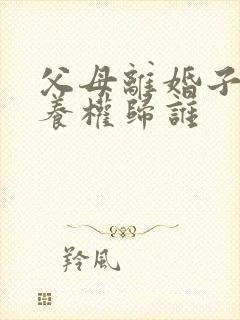 父母離婚子
養權歸誰
羚風